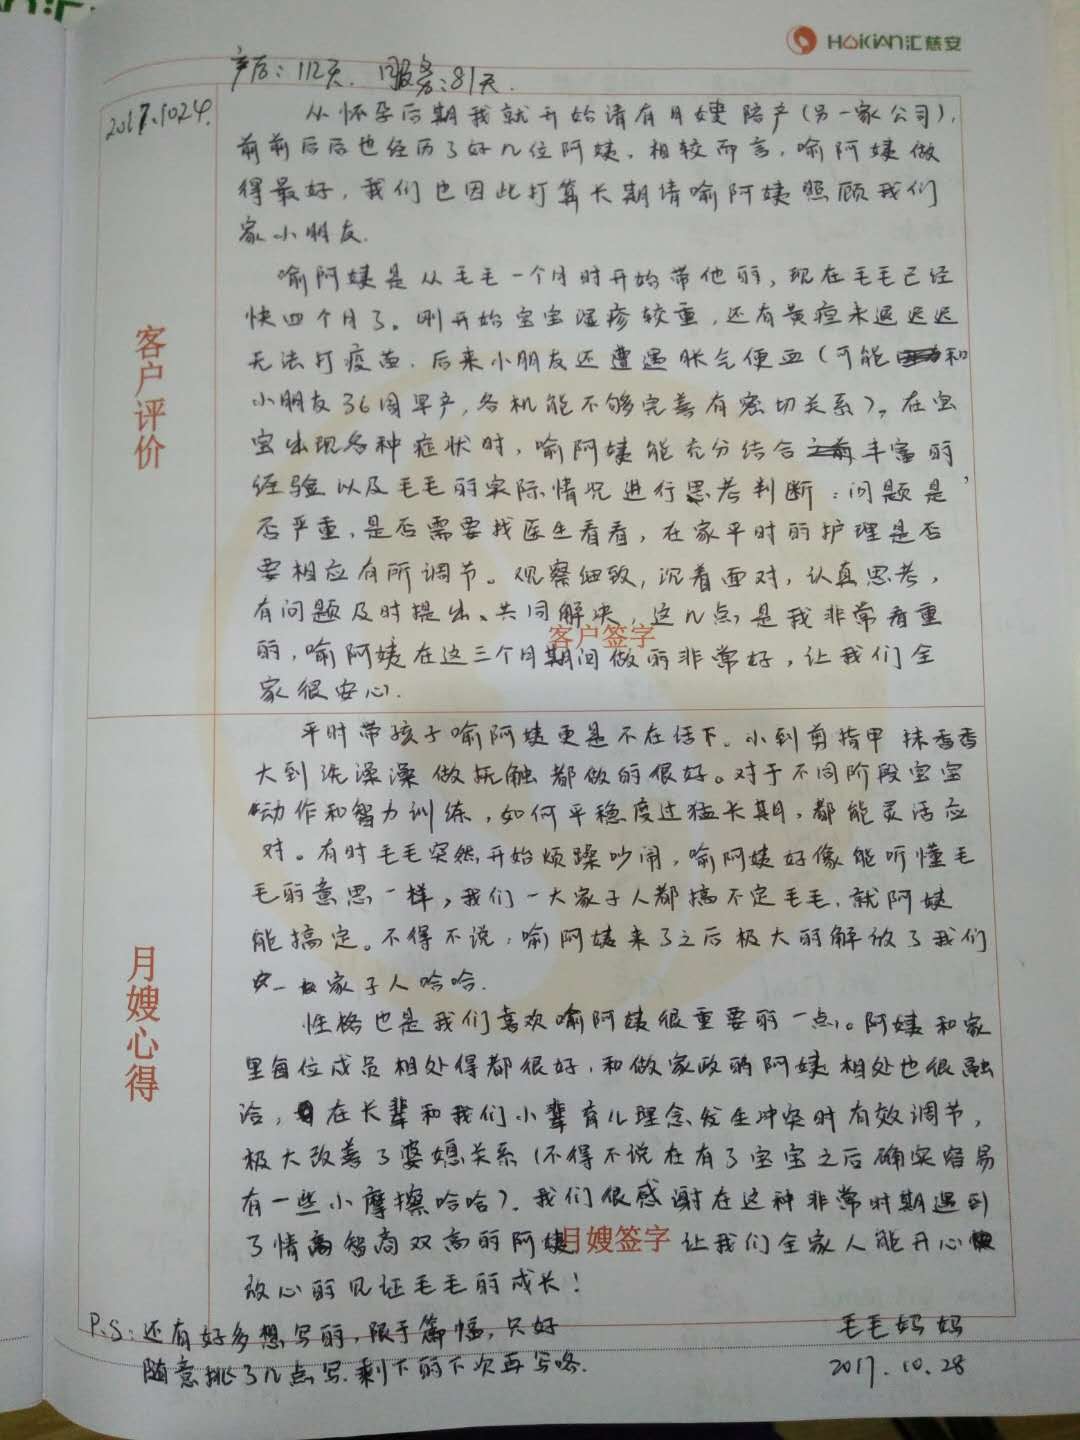 HAiCiAN汇慈安
产后：112天. 服务：81天.
2017.1024.
从怀孕后期我就开始请有月嫂陪产(另一家公司),
前前后后也经历了好几位阿姨，相较而言，喻阿姨做
得最好，我们也因此打算长期请喻阿姨照顾我们
家小朋友.
喻阿姨是从毛毛一个月时开始带他的，现在毛毛已经
快四个月了。刚开始宝宝湿疹较重，还有黄疸未退迟迟
无法打疫苗.后来小朋友还遭遇胀气便血(可能和
小朋友36周早产，各机能不够完善有密切关系)。在宝
宝出现各种症状时，喻阿姨能充分结合之前丰富的
经验以及毛毛的实际情况进行思考判断：问题是
否严重，是否需要找医生看看，在家平时的护理是否
要相应有所调节。观察细致，沉着面对，认真思考，
有问题及时提出、共同解决，这几点是我非常看重
的，喻阿姨在这三个月期间做的非常好，让我们全
家很安心.
客户评价
客户签字
平时带孩子喻阿姨更是不在话下。小到剪指甲 抹香香
大到洗澡澡 做抚触都做的很好。对于不同阶段宝宝
动作和智力训练，如何平稳度过猛长期，都能灵活应
对。有时毛毛突然开始烦躁吵闹，喻阿姨好像能听懂毛
毛的意思一样，我们一大家子人都搞不定毛毛，就阿姨
能搞定。不得不说，喻阿姨来了之后极大的解放了我们
一家子人哈哈.
性格也是我们喜欢喻阿姨很重要的一点。阿姨和家
里每位成员相处得都很好，和做家政的阿姨相处也很融
洽，在长辈和我们小辈育儿理念发生冲突时有效调节，
极大改善了婆媳关系(不得不说在有了宝宝之后确实容易
有一些小摩擦哈哈)。我们很感谢在这种非常时期遇到
了情商智商双高的阿姨 让我们全家人能开心
放心的见证毛毛的成长！
月嫂心得
月嫂签字
P.S：还有好多想写的，限于篇幅，只好
随意挑了几点写.剩下的下次再写咯.
毛毛妈妈
2017.10.28